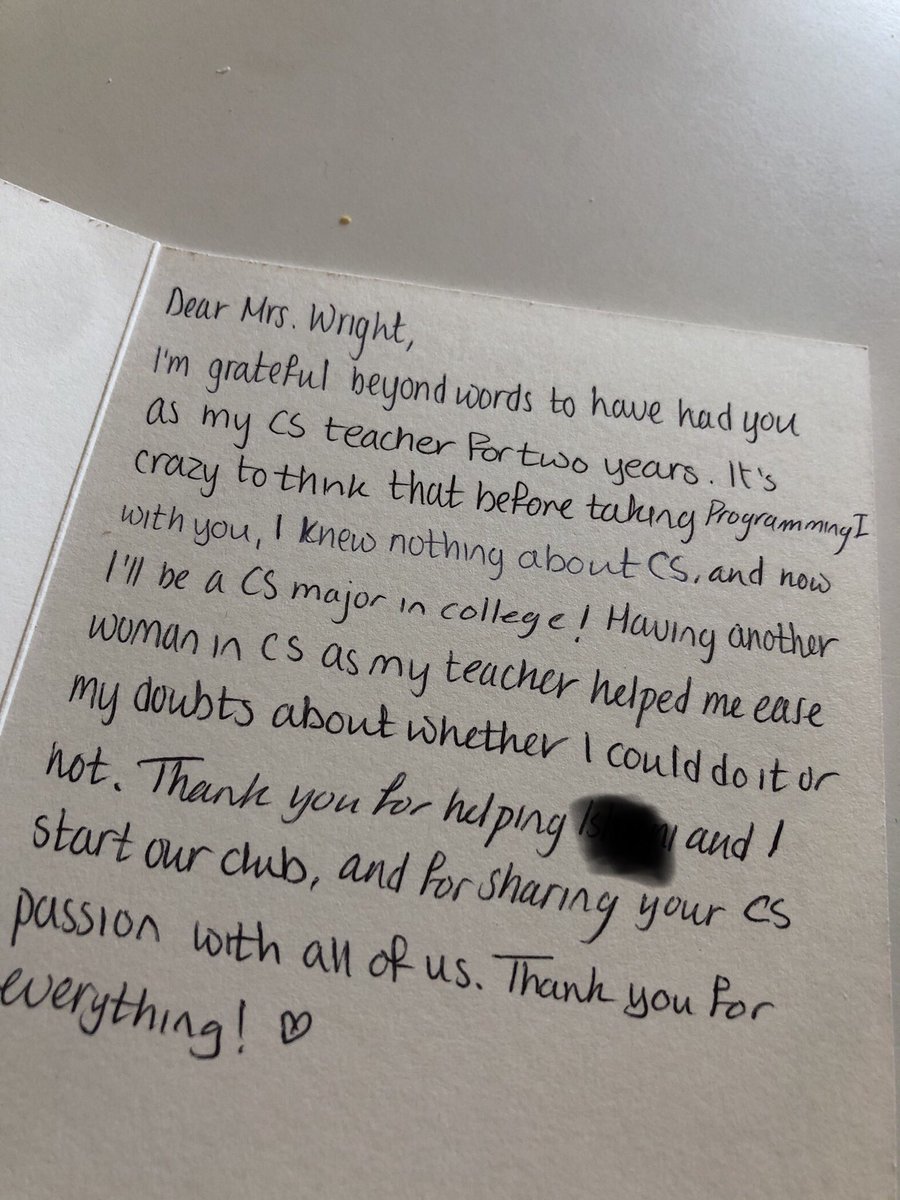 Dear Mrs. Wright,
I'm grateful beyond words to have had you
as my CS teacher for two years. It's
crazy to thnk that before taking Programming I
with you, I knew nothing about CS, and now
I'll be a CS major in college! Having another
woman in CS as my teacher helped me ease
my doubts about whether I could do it or
not. Thank you for helping and I
start our club, and for sharing your CS
passion with all of us. Thank you for
everything! ♡